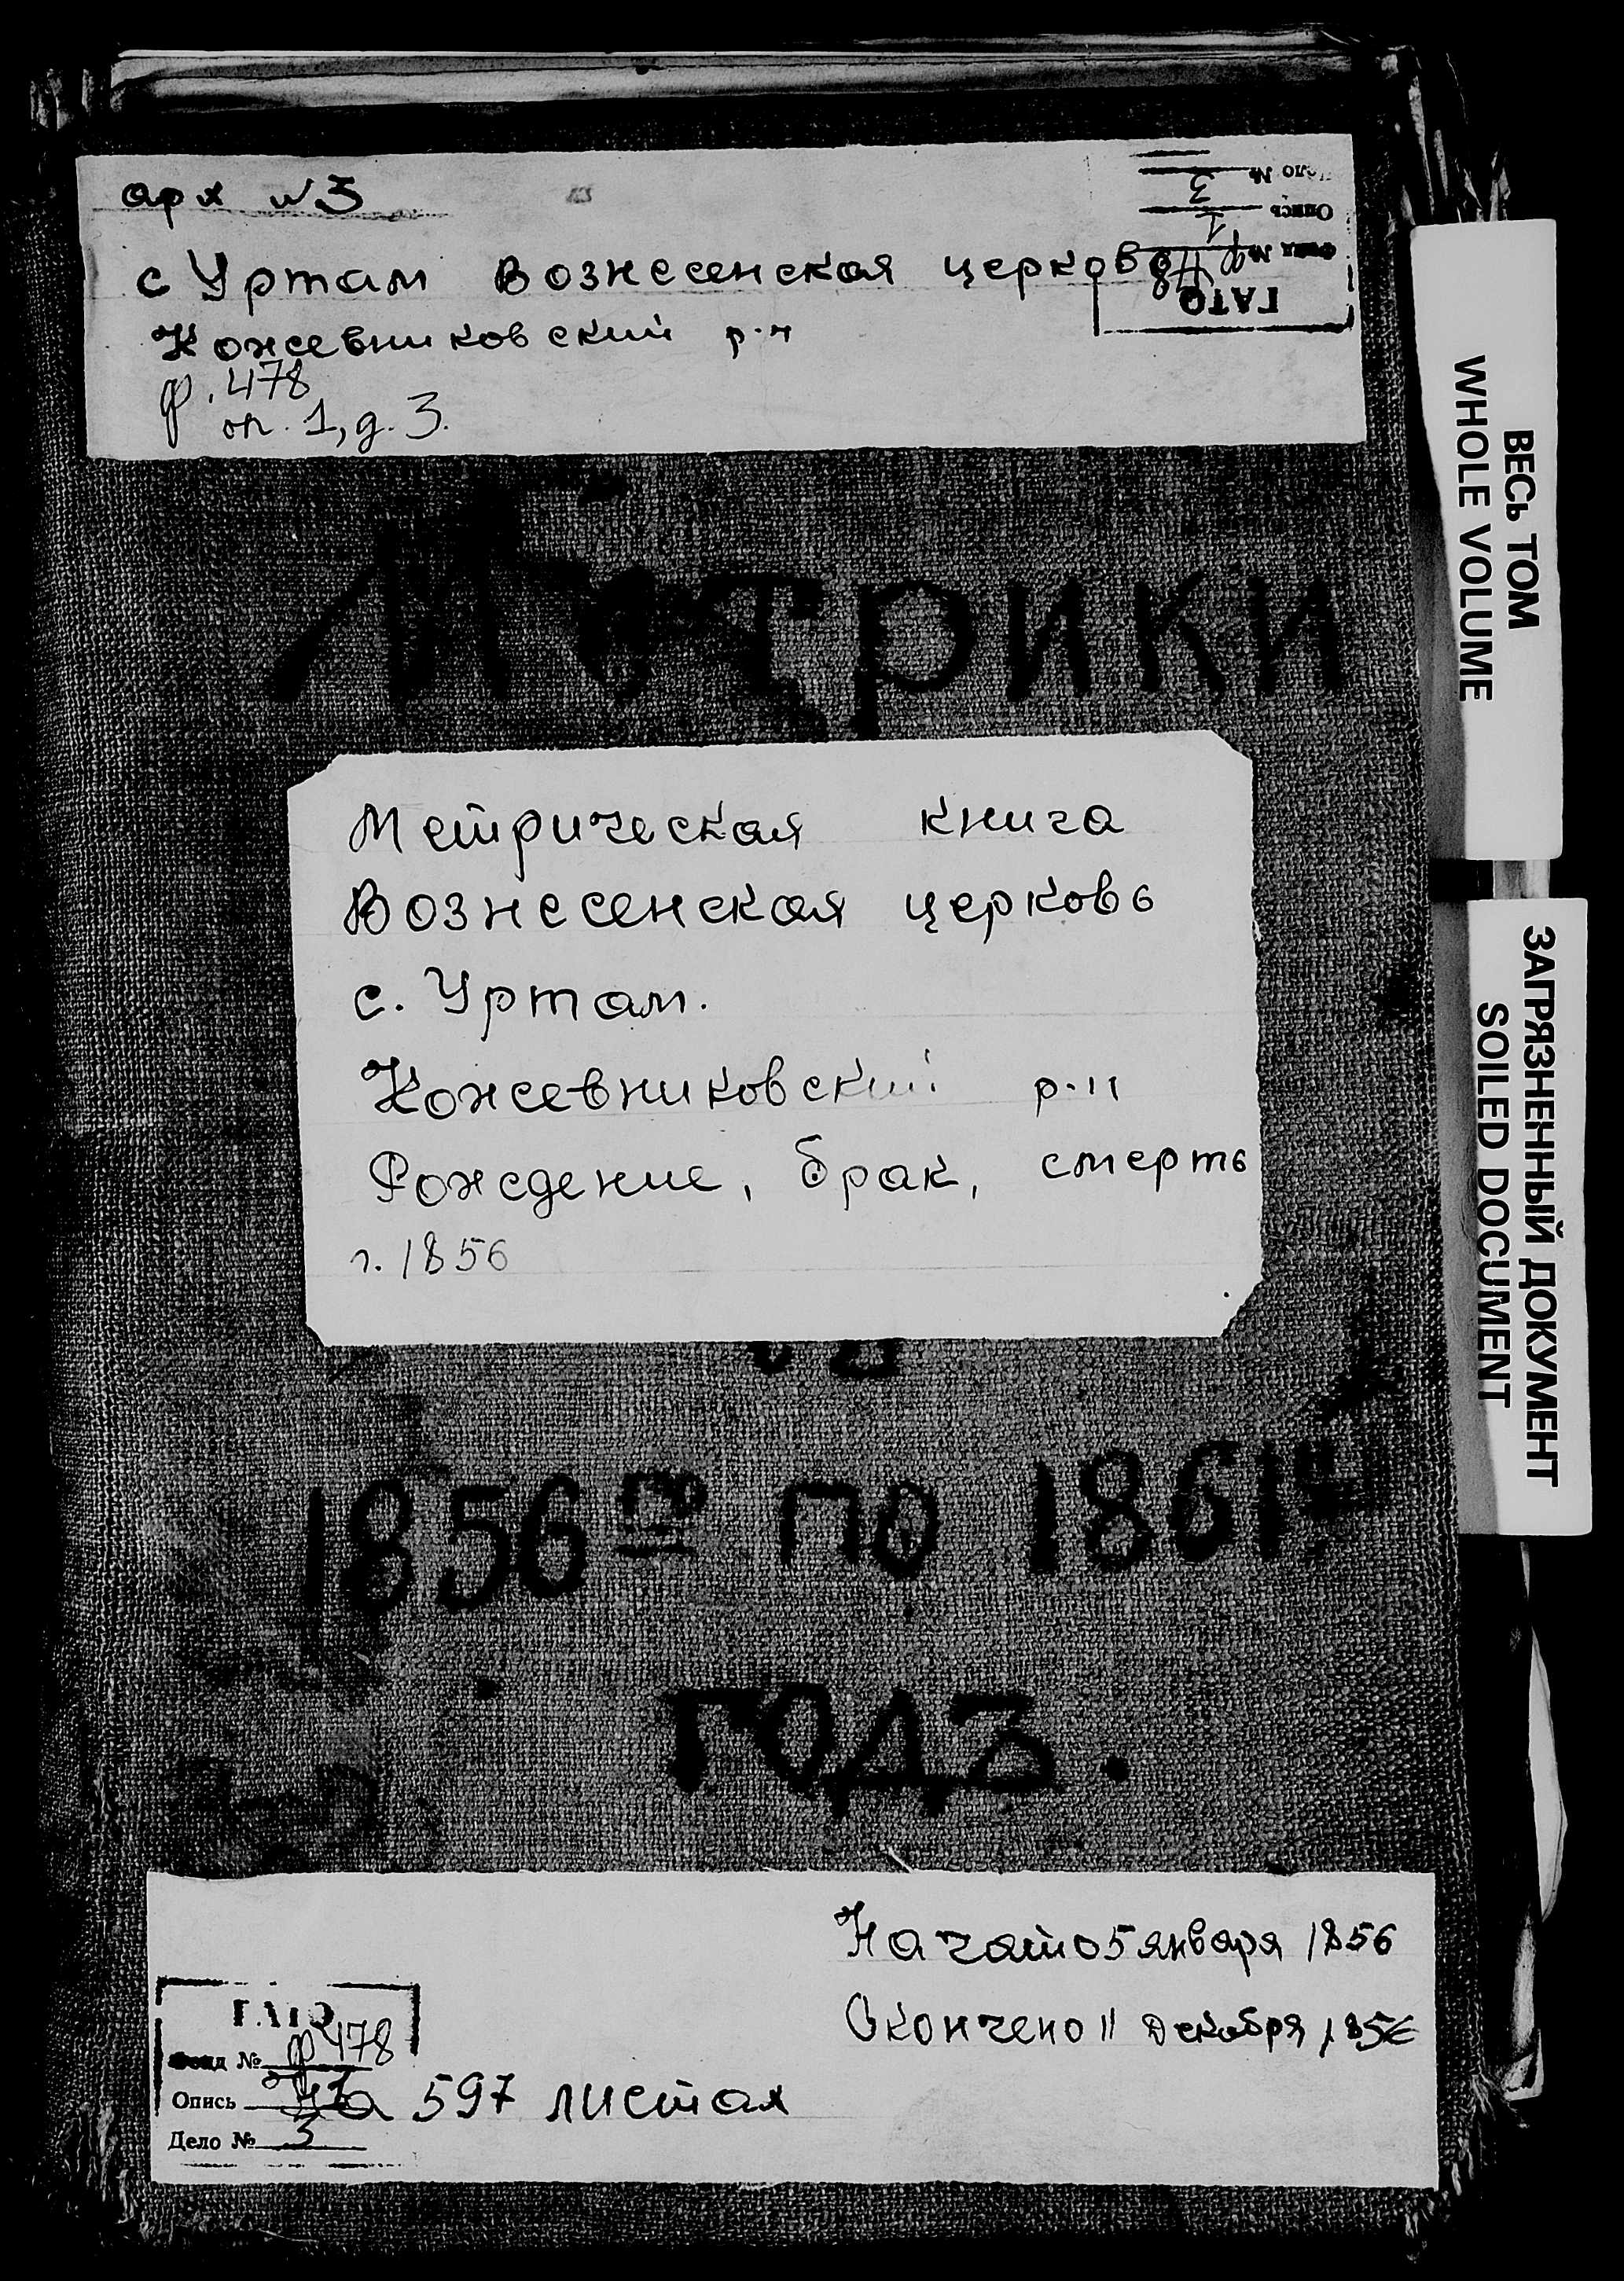 арх №3
с Уртам Вознесенская церковь
Кожевниковский р-н
ф. 478
оп. 1, д. 3.
ГАТО
Фонд № ф 478
Опись 1
Дело № 3
Метрики
Метрическая книга
Вознесенская церковь
с. Уртам.
Кожевниковский р-н
Рождение, брак, смерть
г. 1856
1856го по 1861й
годъ.
Начато 5 января 1856
Окончено 11 декабря 185
ГАТО
Фонд № ф 478
Опись
На 597 листах
Дело № 3
ВЕСЬ ТОМ
WHOLE VOLUME
ЗАГРЯЗНЕННЫЙ ДОКУМЕНТ
SOILED DOCUMENT